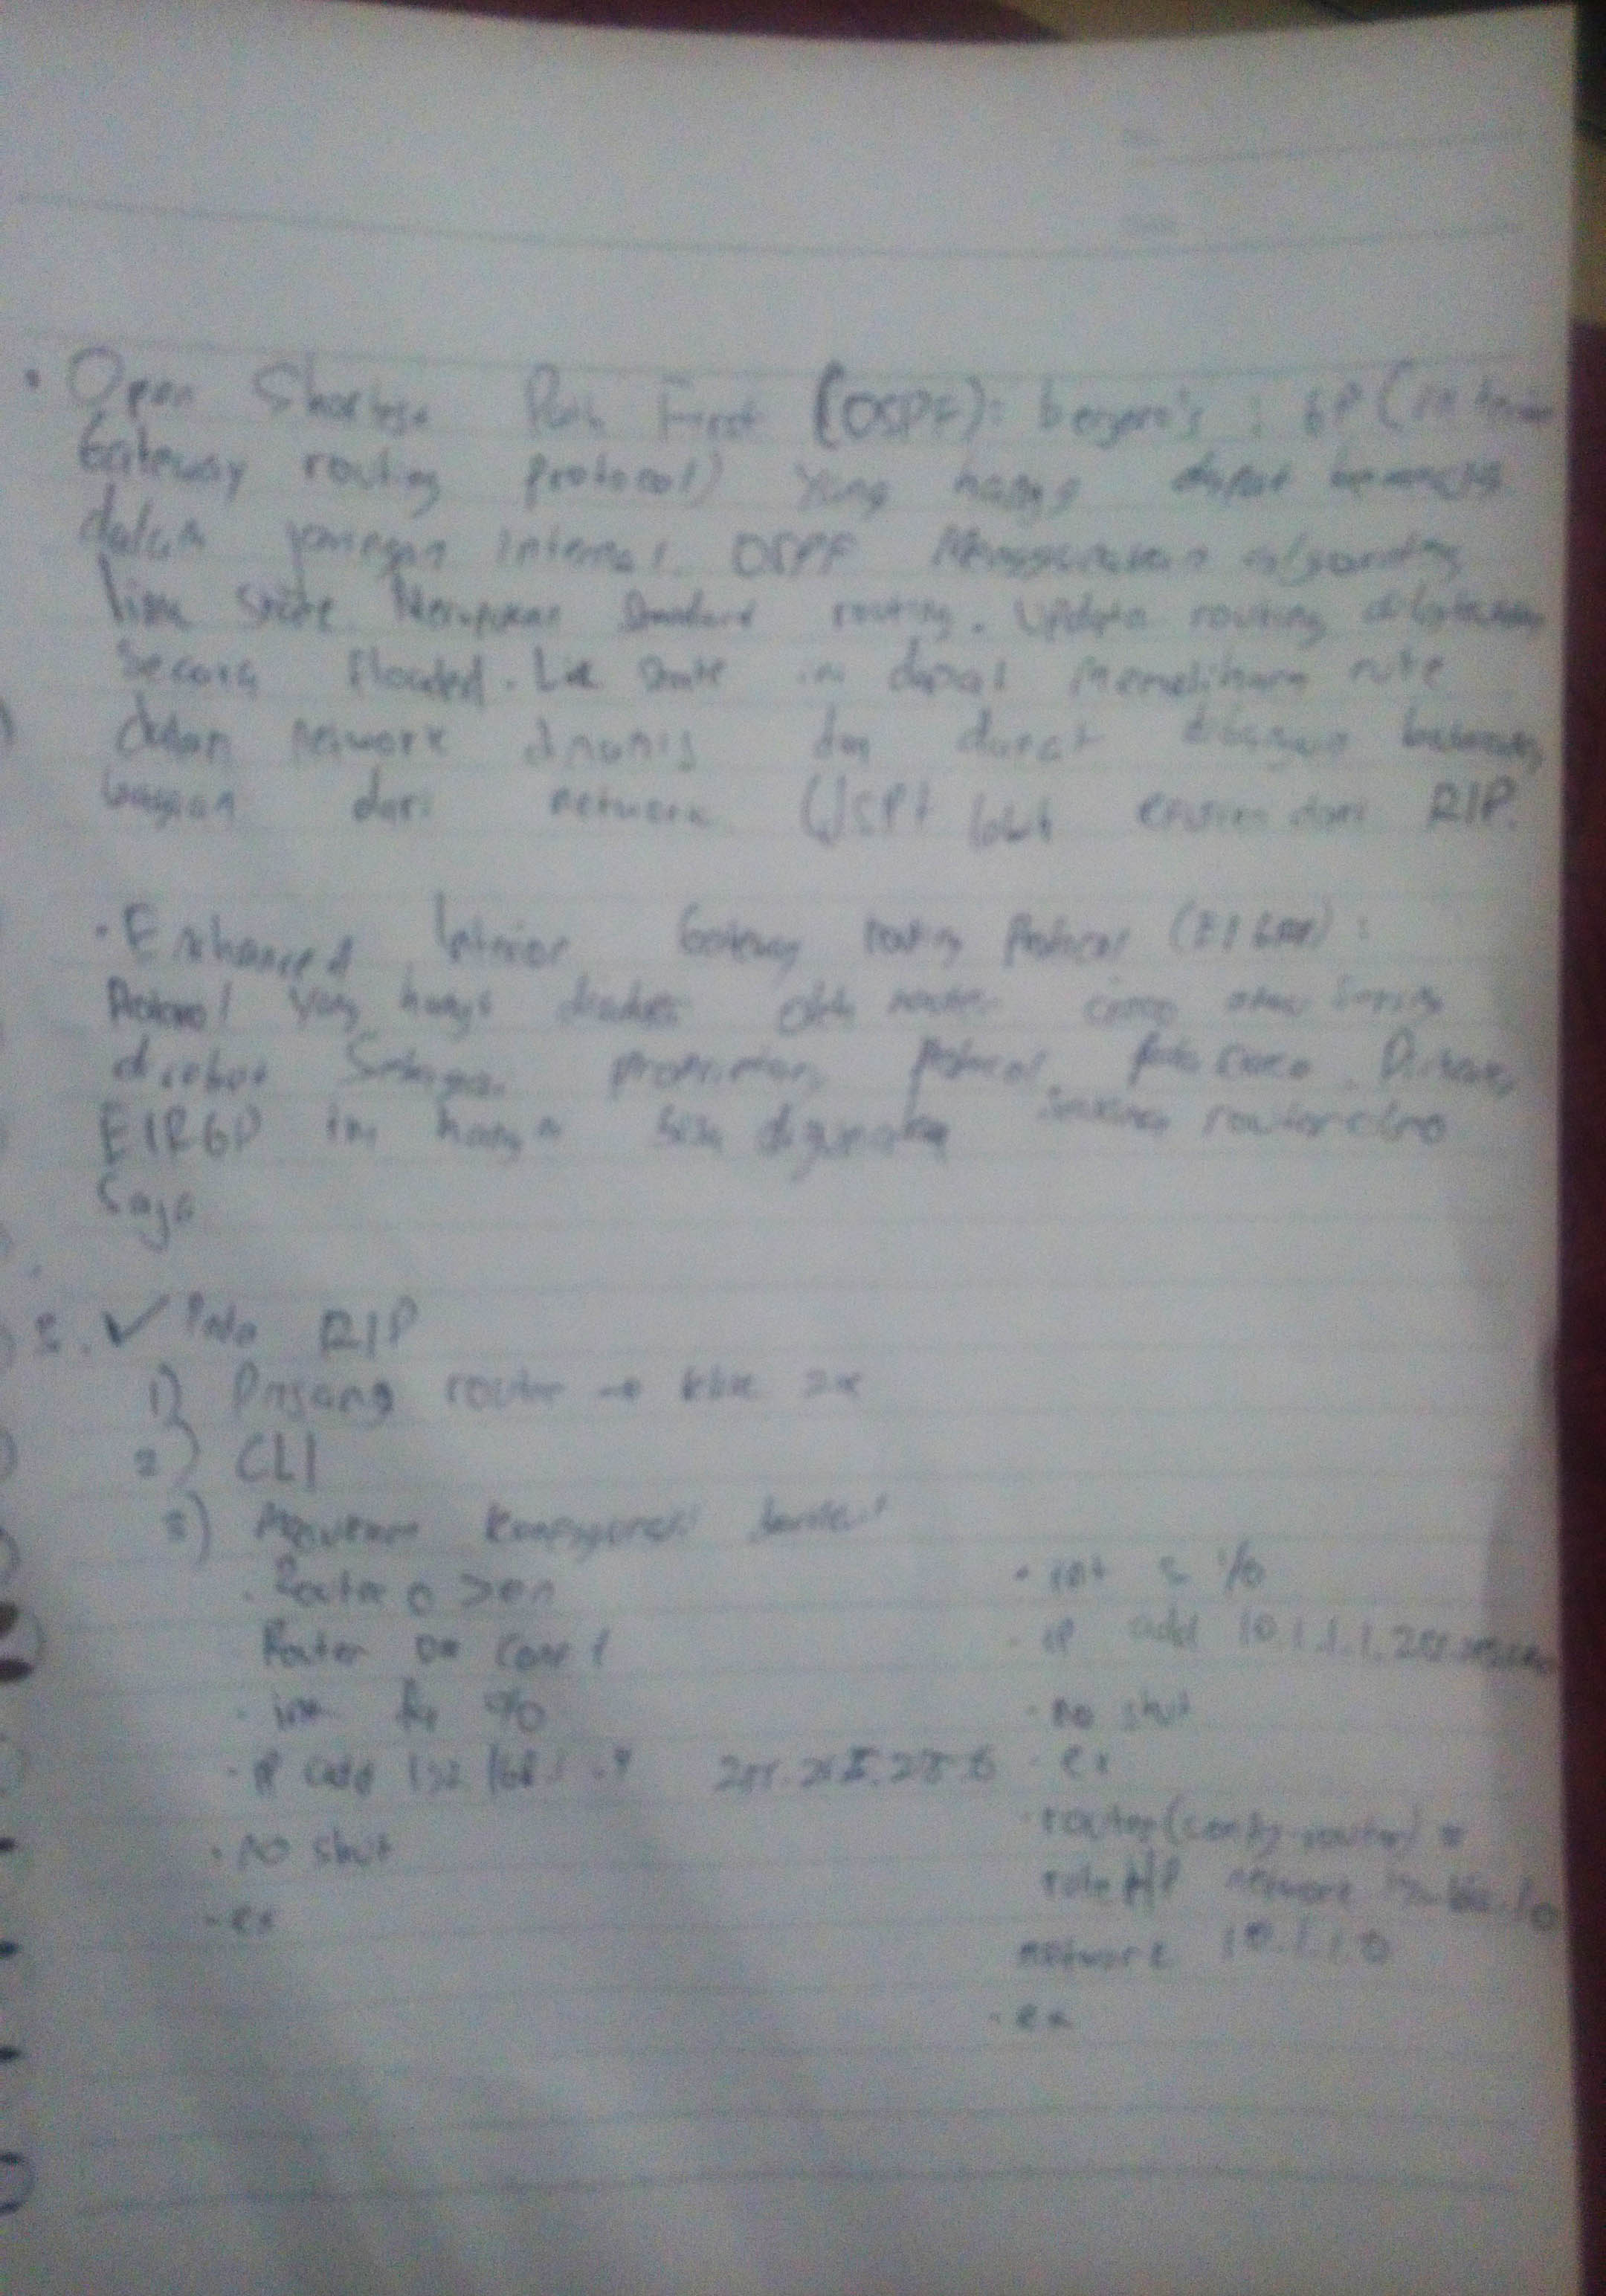 • Open Shortest Path First (OSPF): berjenis : GP (interior
Gateway routing protocol) yang hanya dapat
dalam jaringan internal. OSPF Menggunakan algoritma
link State. Merupakan Standard routing. Update routing
Secara flooded. Link State ini dapat memelihara rute
dalam network dinamis dan dapat
bagian dari network OSPF lebih efisien dari RIP.
• Enhanced Interior Gateway routing Protocol (EIGRP) :
Protocol yang hanya oleh router cisco atau sering
disebut Sebagai proprietary Protocol pada cisco. Dimana
EIRGP ini hanya bisa digunakan router cisco
Saja
5. ✓ Pada RIP
1) Pasang router → klik 2x
2) CLI
3) konfigurasi berikut
• Router 0 >en
Router conf t
• int fa 0/0
• ip add
• no shut
• ex
• int s 1/0
• ip add 10.1.1.1.
• no shut
• ex
• router(config-router) #
RIP network
network 10.1.1.0
• ex